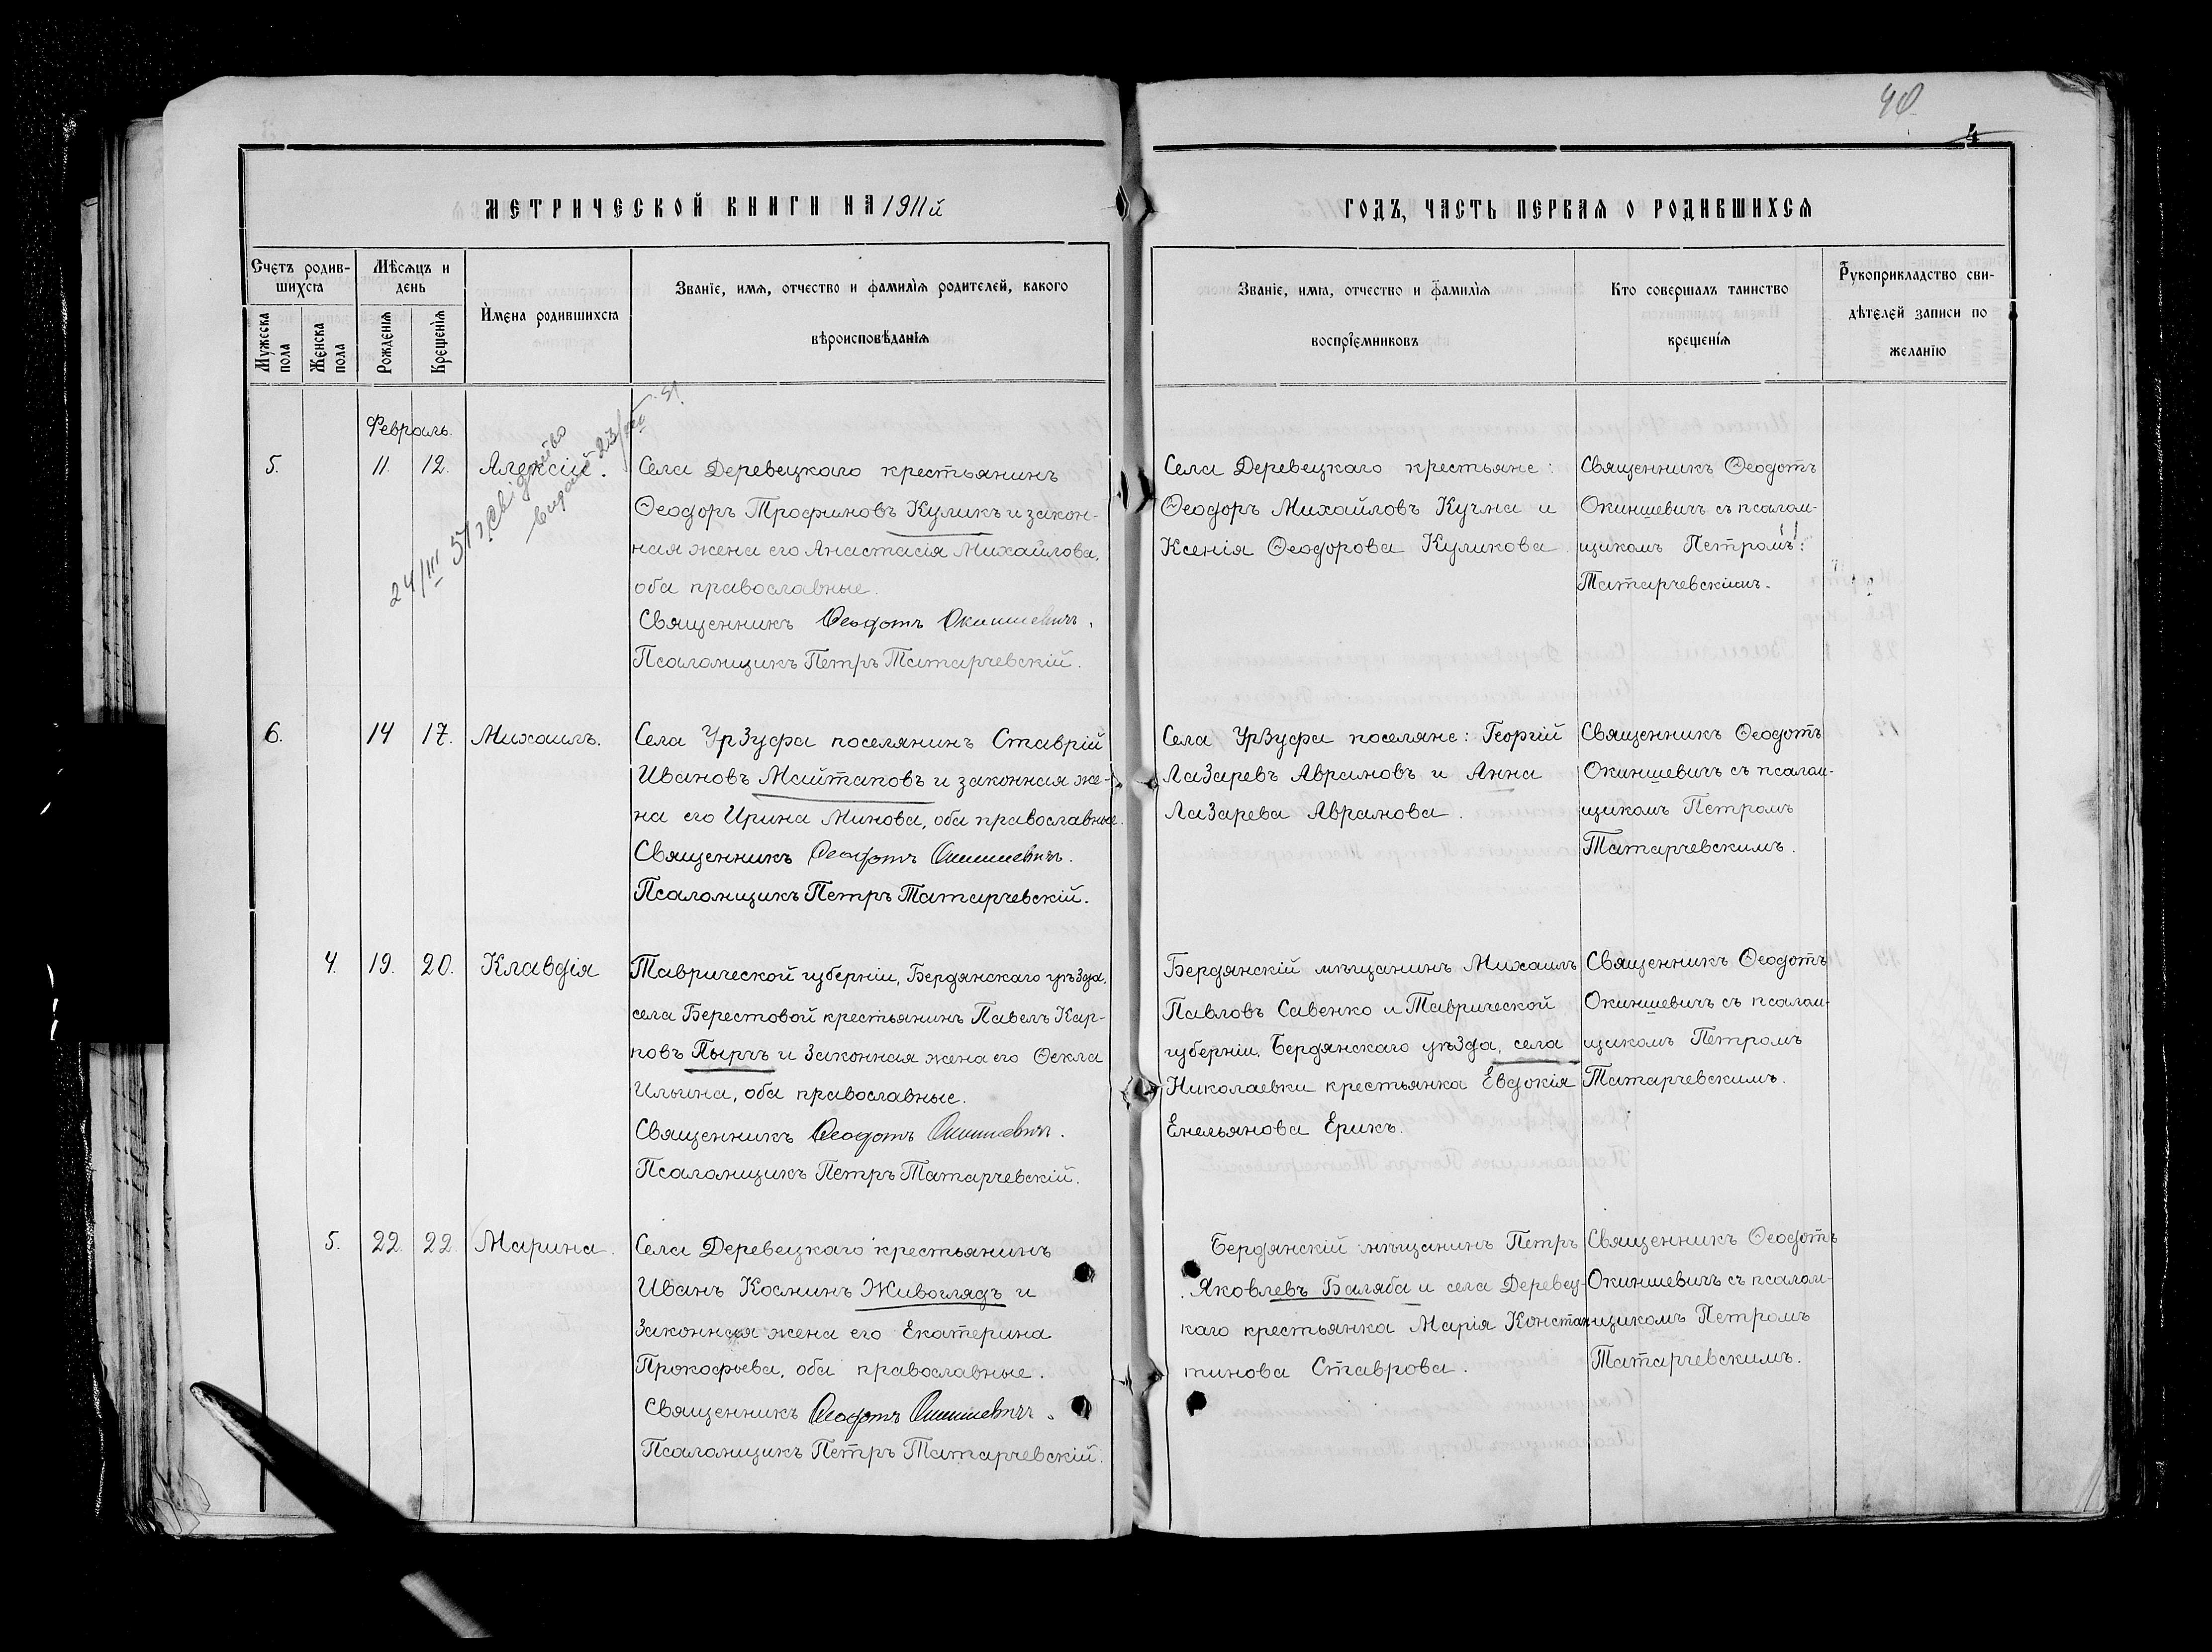 40
4
МЕТРИЧЕСКОЙ КНИГИ НА 1911й
ГОДЪ, ЧАСТЬ ПЕРВАЯ О РОДИВШИХСЯ
Счетъ родив-
шихся
Мужеска
пола
Женска
пола
Мѣсяцъ и
день
Рожденія
Крещенія
Имена родившихся
Званіе, имя, отчество и фамилія родителей, какого
вѣроисповѣданія
Званіе, имя, отчество и фамилія
воспріемниковъ
Кто совершалъ таинство
крещенія
Рукоприкладство сви-
дѣтелей записи по
желанію
Февраль.
5.
11.
12.
Алексій.
24/III 51 г.
Села Деревецкаго крестьянинъ
Ѳеодоръ Трофимовъ Куликъ и закон-
ная жена его Анастасія Михайлова,
оба православные.
Священникъ Ѳеодотъ Окиншевичъ.
Псаломщикъ Петръ Татарчевскій.
Села Деревецкаго крестьяне:
Ѳеодоръ Михайловъ Кучма и
Ксенія Ѳеодорова Куликова
Священникъ Ѳеодотъ
Окиншевичъ съ псалом-
щикомъ Петромъ
Татарчевскимъ.
6.
14
17.
Михаилъ.
Села Урзуфа поселянинъ Ставрій
Ивановъ Майтаповъ и законная же-
на его Ирина Минова, оба православные.
Священникъ Ѳеодотъ Окиншевичъ.
Псаломщикъ Петръ Татарчевскій.
Села Урзуфа поселяне: Георгій
Лазаревъ Аврамовъ и Анна
Лазарева Аврамова.
Священникъ Ѳеодотъ
Окиншевичъ съ псалом-
щикомъ Петромъ
Татарчевскимъ.
4.
19.
20.
Клавдія
Таврической губерніи, Бердянскаго уѣзда,
села Берестовой крестьянинъ Павелъ Кар-
повъ Пырчъ и законная жена его Ѳекла
Ильина, оба православные.
Священникъ Ѳеодотъ Окиншевичъ.
Псаломщикъ Петръ Татарчевскій.
Бердянскій мѣщанинъ Михаилъ
Павловъ Савенко и Таврической
губерніи, Бердянскаго уѣзда, села
Николаевки крестьянка Евдокія
Емельянова Ерикъ.
Священникъ Ѳеодотъ
Окиншевичъ съ псалом-
щикомъ Петромъ
Татарчевскимъ.
5.
22.
22.
Марина.
Села Деревецкаго крестьянинъ
Иванъ Косминъ Живоглядъ и
законная жена его Екатерина
Прокофьева, оба православные.
Священникъ Ѳеодотъ Окиншевичъ.
Псаломщикъ Петръ Татарчевскій.
Бердянскій мѣщанинъ Петръ
Яковлевъ Баляба и села Деревец-
каго крестьянка Марія Констан-
тинова Ставрова.
Священникъ Ѳеодотъ
Окиншевичъ съ псалом-
щикомъ Петромъ
Татарчевскимъ.